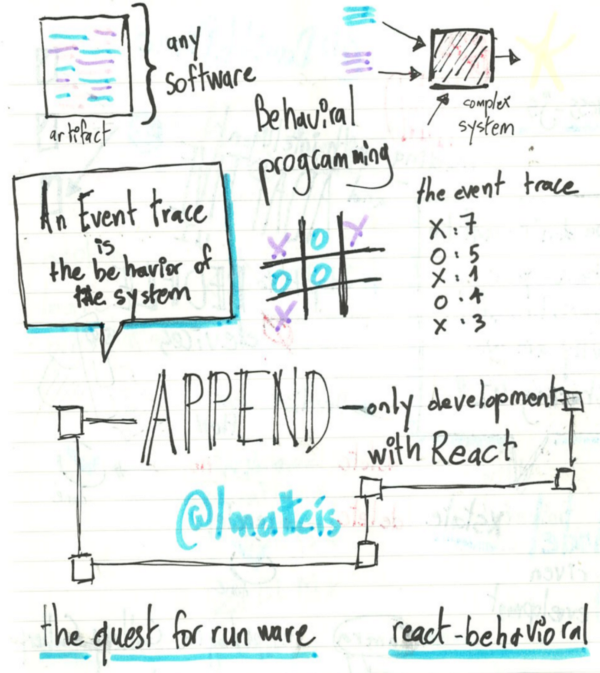 any
software
artifact
complex
system
Behaviral
progamming
the event trace
X:7
O:5
X:1
O:4
X:3
An Event trace
is
the behavior of
the system
X O X
O O
X
APPEND -only development
with React
@lmatteis
the quest for run ware
react-behavioral